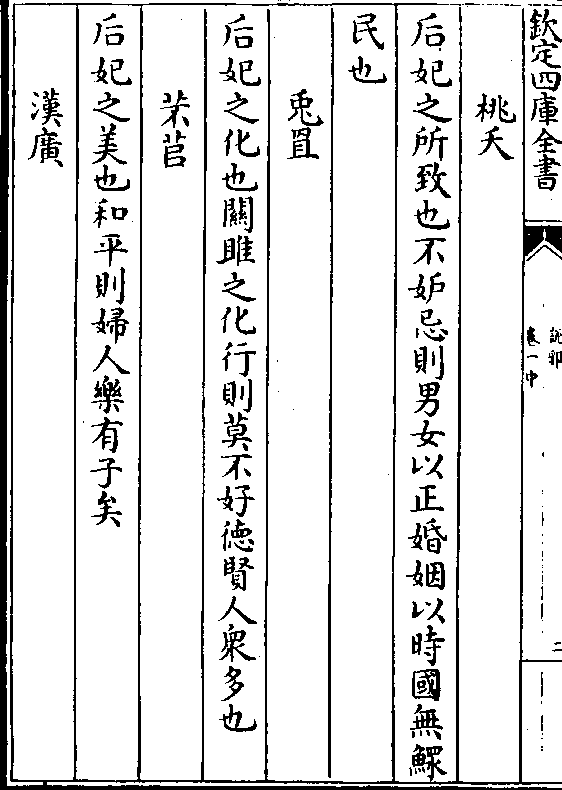 欽定四庫全書
卷一中
二
桃夭
后妃之所致也不妒忌則男女以正婚姻以時國無鰥
民也
兎罝
后妃之化也關雎之化行則莫不好德賢人衆多也
芣苢
后妃之美也和平則婦人樂有子矣
漢廣